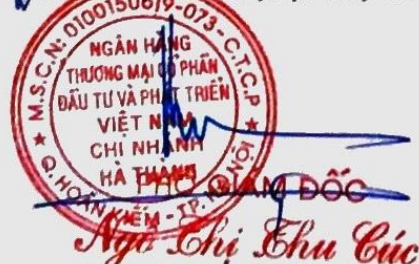 M.S.C.N: 0100150619-073-C.T.C.P
NGÂN HÀNG
THƯƠNG MẠI CỔ PHẦN
ĐẦU TƯ VÀ PHÁT TRIỂN
VIỆT NAM
CHI NHÁNH
HÀ THÀNH
Q. HOÀN KIẾM - TP. HÀ NỘI
PHÓ GIÁM ĐỐC
Ngô Thị Thu Cúc